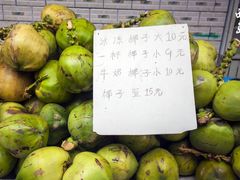 冰冻 椰子 大 10元
一杯 椰子 小 9元
牛奶 椰子 小 10元
椰子 蛋 15元